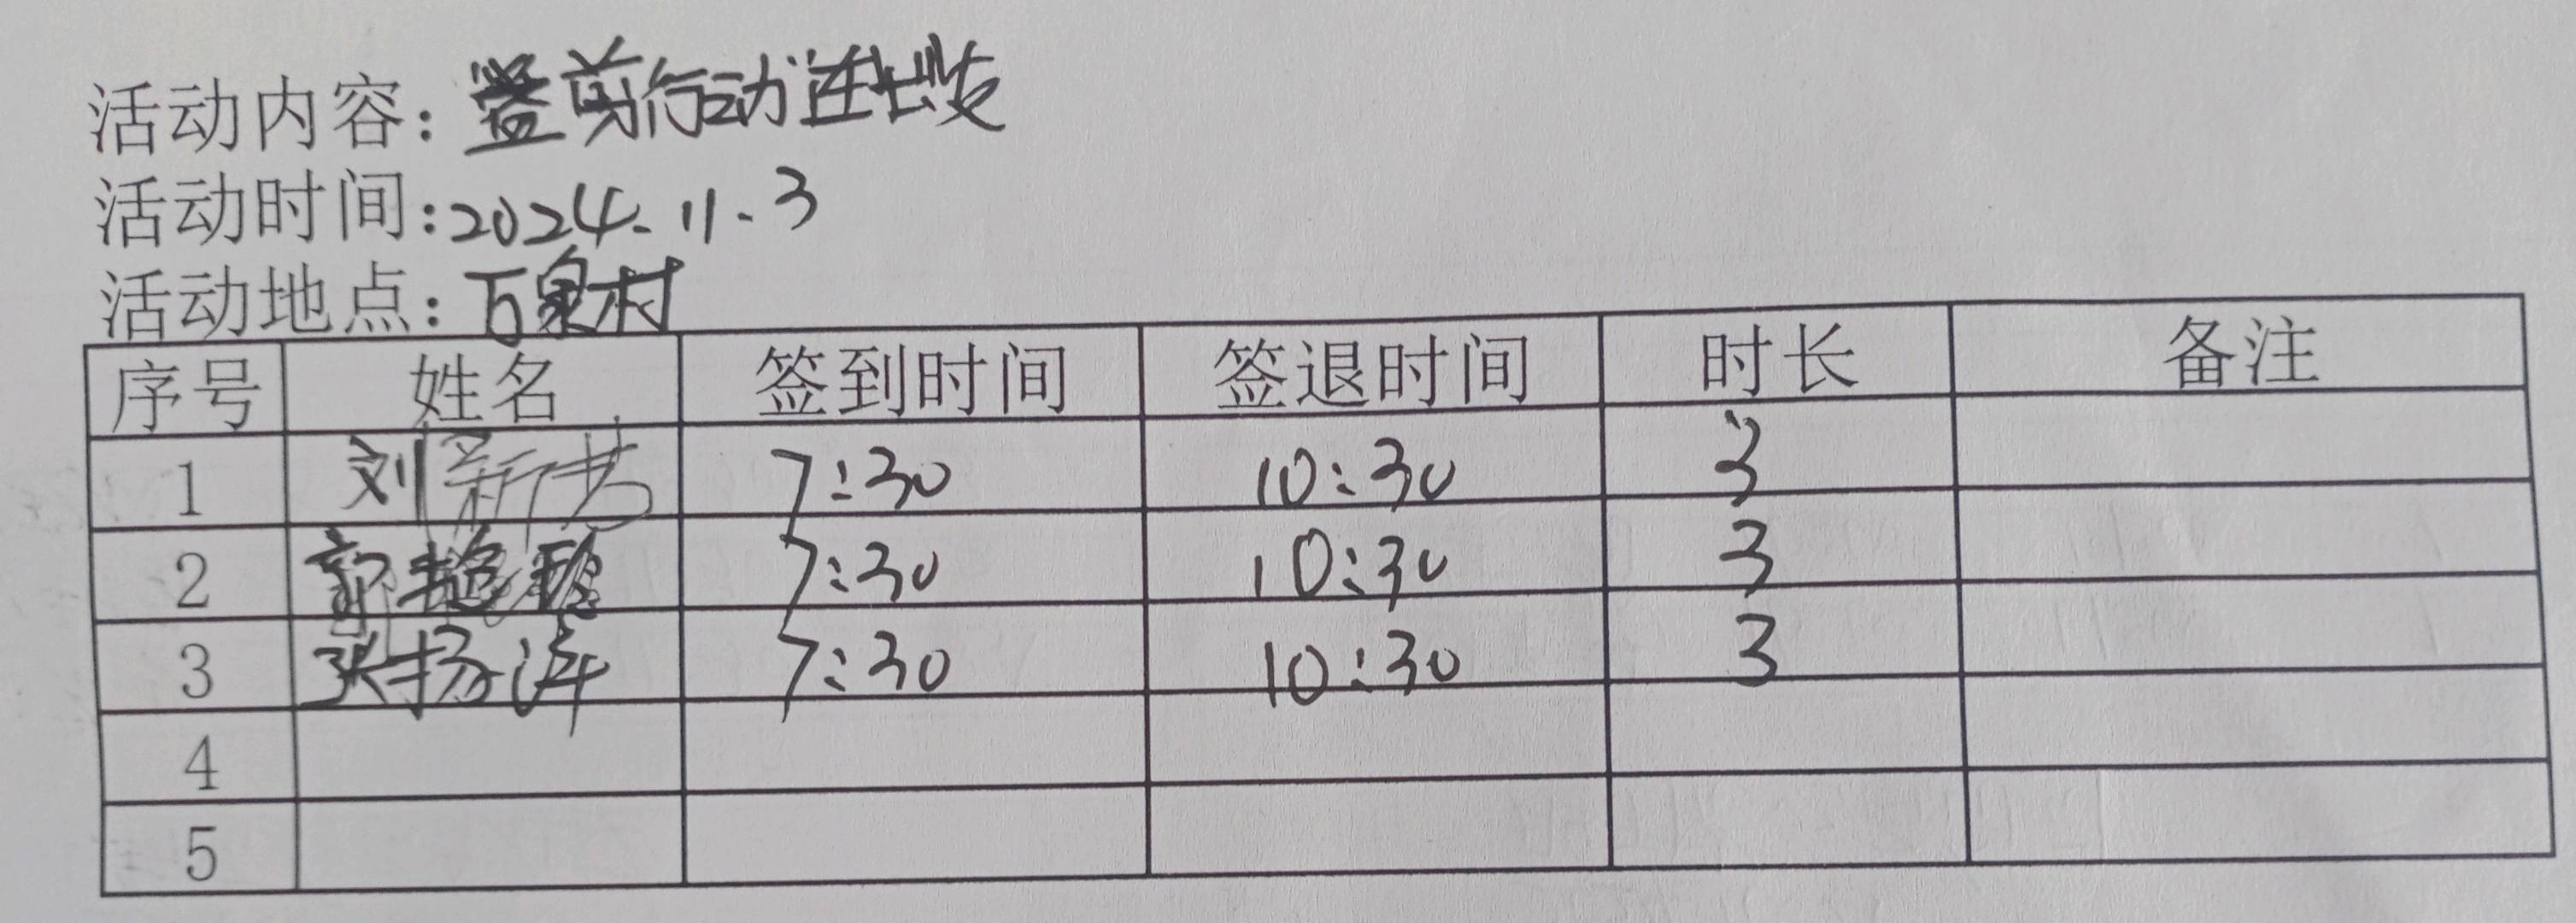 活动内容: 剪行动进
活动时间:2024.11.3
活动地点: 万泉村
序号 姓名 签到时间 签退时间 时长 备注
1 刘新芳 7:30 10:30 3
2 郭艳 7:30 10:30 3
3 张扬涛 7:30 10:30 3
4
5